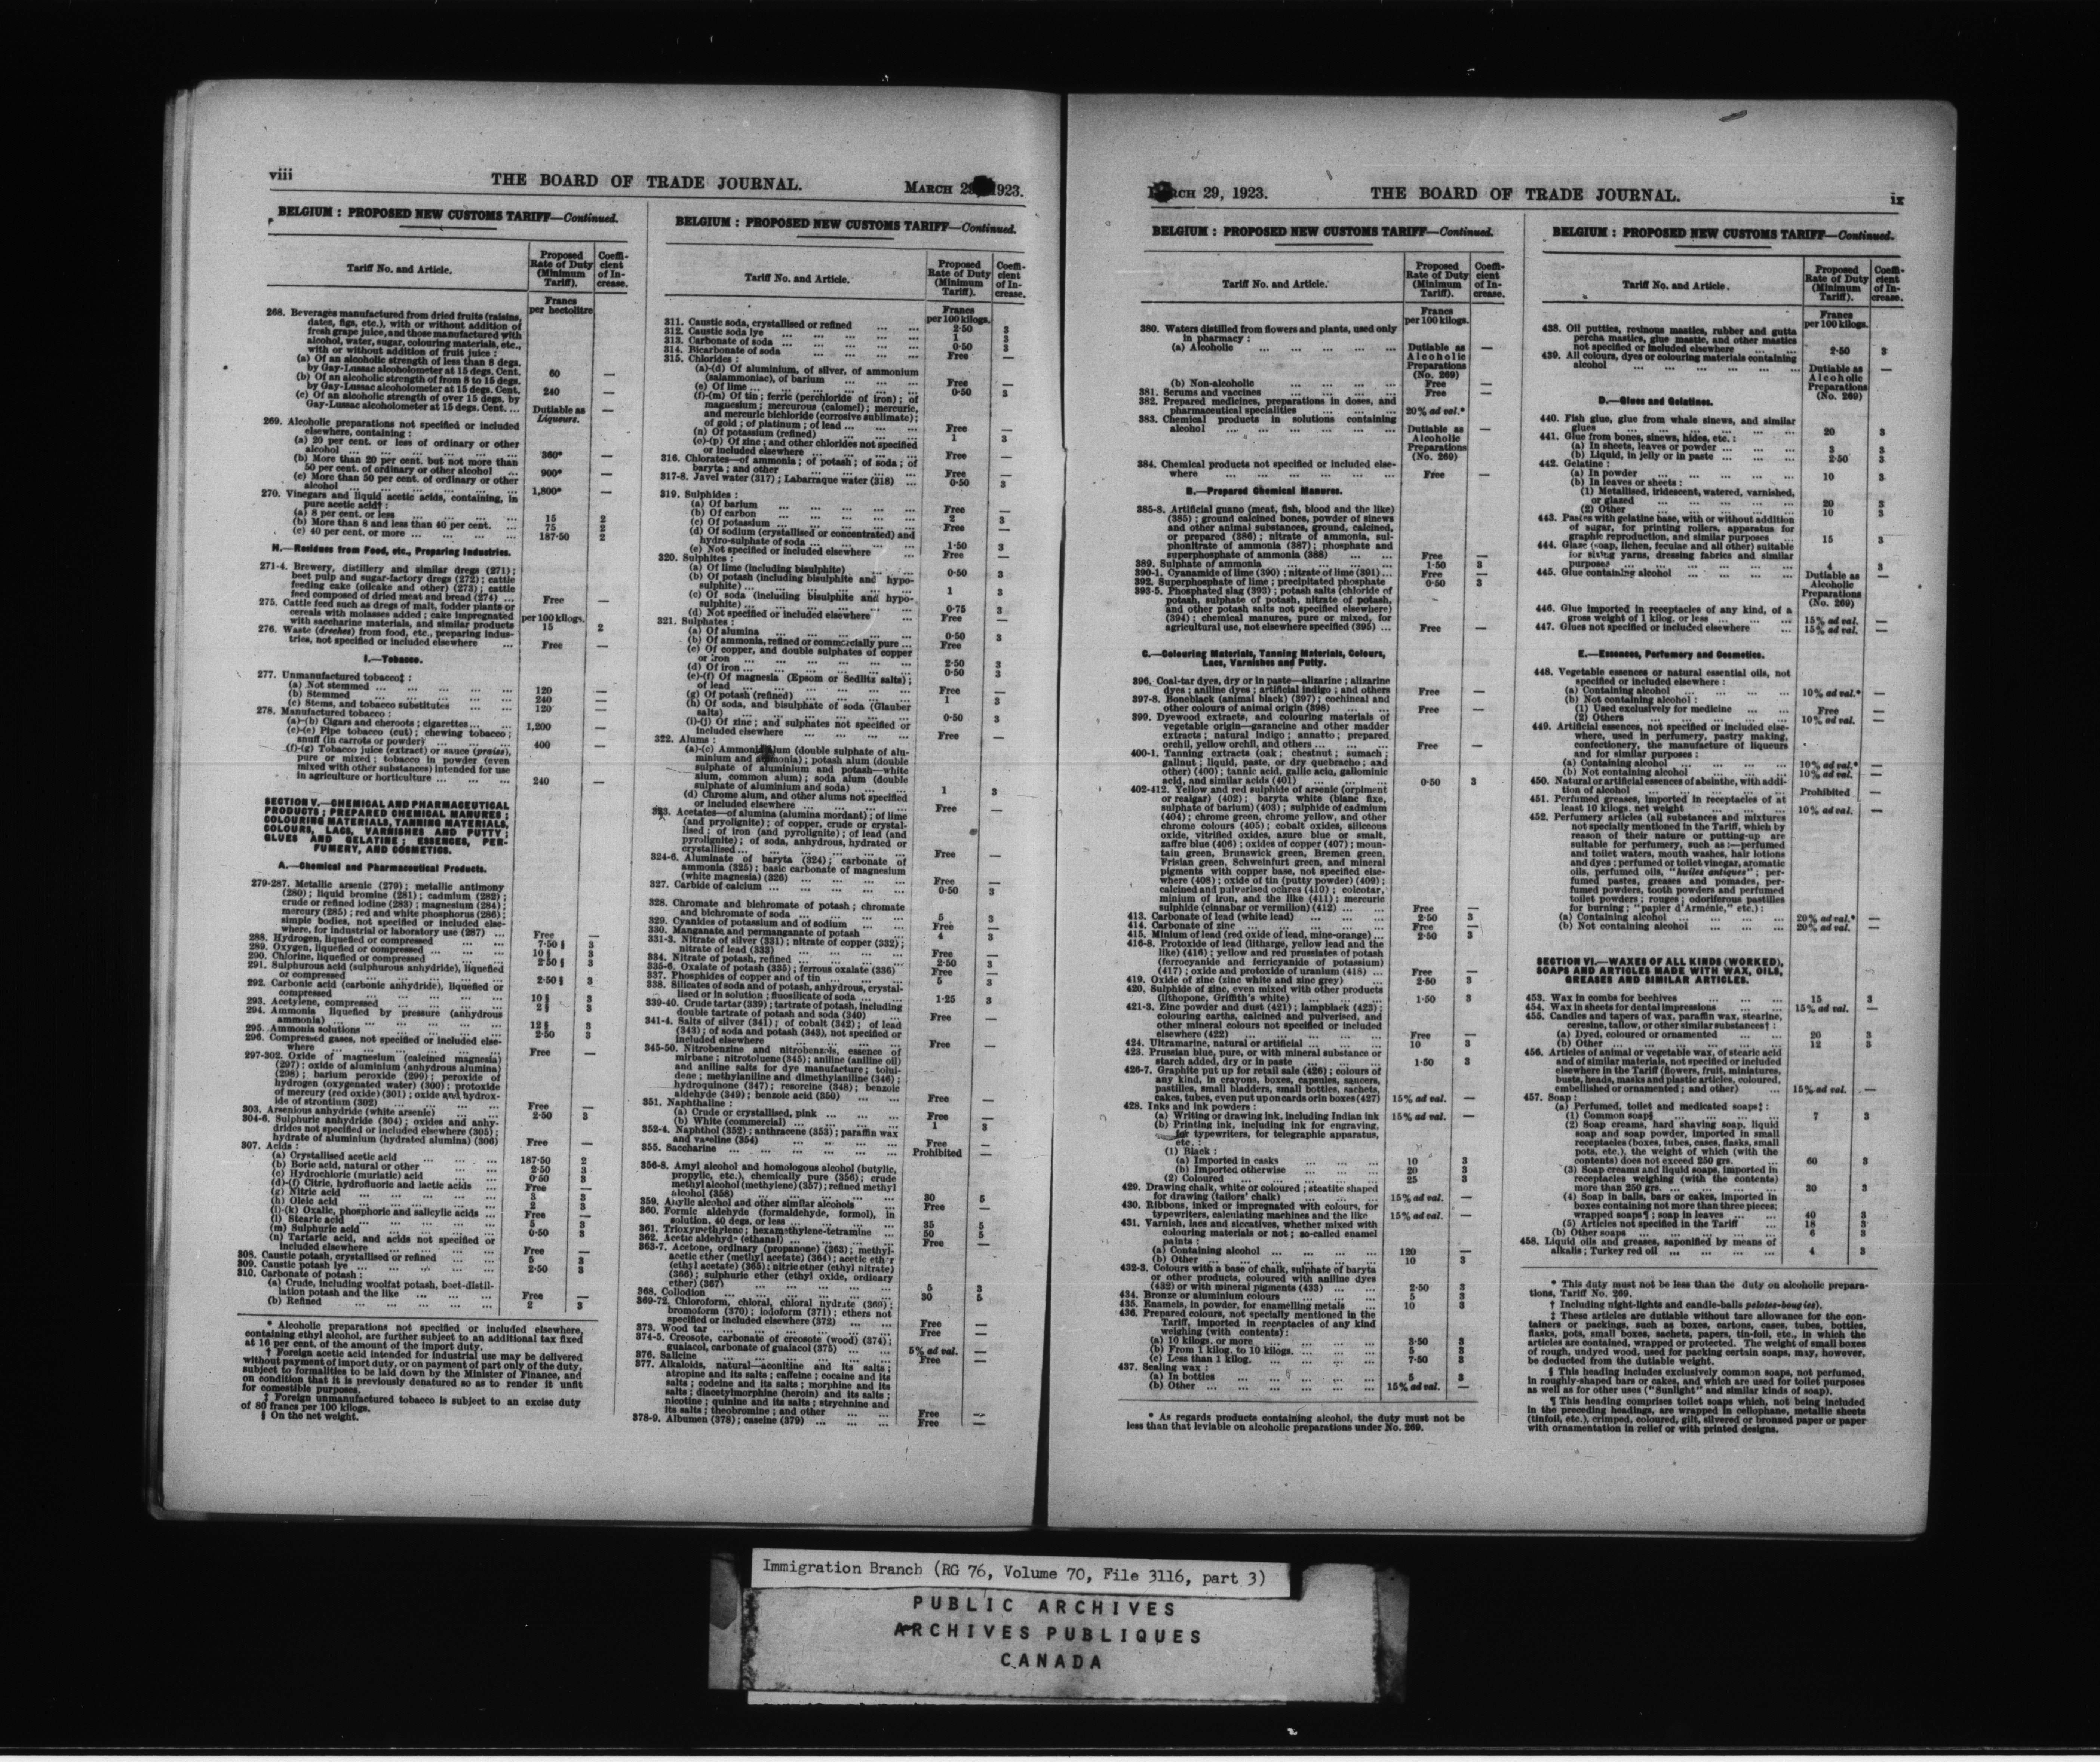 viii THE BOARD OF TRADE JOURNAL. MARCH 29, 1923.
BELGIUM : PROPOSED NEW CUSTOMS TARIFF—Continued.
Tariff No. and Article. Proposed Rate of Duty (Minimum Tariff). Coeffi-cient of In-crease.
Francs per hectolitre
268. Beverages manufactured from dried fruits (raisins,
dates, figs, etc.), with or without addition of
fresh grape juice, and those manufactured with
alcohol, water, sugar, colouring materials, etc.,
with or without addition of fruit juice :
(a) Of an alcoholic strength of less than 8 degs.
by Gay-Lussac alcoholometer at 15 degs. Cent. 60 —
(b) Of an alcoholic strength of from 8 to 15 degs.
by Gay-Lussac alcoholometer at 15 degs. Cent. 240 —
(c) Of an alcoholic strength of over 15 degs. by
Gay-Lussac alcoholometer at 15 degs. Cent. ... Dutiable as Liqueurs. —
269. Alcoholic preparations not specified or included
elsewhere, containing :
(a) 20 per cent. or less of ordinary or other
alcohol ... 360* —
(b) More than 20 per cent. but not more than
50 per cent. of ordinary or other alcohol ... 900* —
(c) More than 50 per cent. of ordinary or other
alcohol ... 1,800* —
270. Vinegars and liquid acetic acids, containing, in
pure acetic acid† :
(a) 8 per cent. or less ... 15 2
(b) More than 8 and less than 40 per cent. ... 75 2
(c) 40 per cent. or more ... 187·50 2
H.—Residues from Food, etc., Preparing Industries.
271-4. Brewery, distillery and similar dregs (271) ;
beet pulp and sugar-factory dregs (272) ; cattle
feeding cake (oilcake and other) (273) ; cattle
feed composed of dried meat and bread (274) ... Free —
275. Cattle feed such as dregs of malt, fodder plants or
cereals with molasses added ; cake impregnated per 100 kilogs.
with saccharine materials, and similar products 15 2
276. Waste (dreches) from food, etc., preparing indus-
tries, not specified or included elsewhere ... Free —
I.—Tobacco.
277. Unmanufactured tobacco‡ :
(a) Not stemmed ... 120 —
(b) Stemmed ... 240 —
(c) Stems, and tobacco substitutes ... 120 —
278. Manufactured tobacco :
(a)-(b) Cigars and cheroots ; cigarettes ... 1,200 —
(c)-(e) Pipe tobacco (cut) ; chewing tobacco ;
snuff (in carrots or powder) ... 400 —
(f)-(g) Tobacco juice (extract) or sauce (praiss),
pure or mixed ; tobacco in powder (even
mixed with other substances) intended for use
in agriculture or horticulture ... 240 —
SECTION V.—CHEMICAL AND PHARMACEUTICAL
PRODUCTS ; PREPARED CHEMICAL MANURES ;
COLOURING MATERIALS, TANNING MATERIALS,
COLOURS, LACS, VARNISHES AND PUTTY ;
GLUES AND GELATINE ; ESSENCES, PER-
FUMERY, AND COSMETICS.
A.—Chemical and Pharmaceutical Products.
279-287. Metallic arsenic (279) ; metallic antimony
(280) ; liquid bromine (281) ; cadmium (282) ;
crude or refined iodine (283) ; magnesium (284) ;
mercury (285) ; red and white phosphorus (286) ;
simple bodies, not specified or included else-
where, for industrial or laboratory use (287) ... Free —
288. Hydrogen, liquefied or compressed ... 7·50 § 3
289. Oxygen, liquefied or compressed ... 10 § 3
290. Chlorine, liquefied or compressed ... 2·50 § 3
291. Sulphurous acid (sulphurous anhydride), liquefied
or compressed ... 2·50 § 3
292. Carbonic acid (carbonic anhydride), liquefied or
compressed ... 10 § 3
293. Acetylene, compressed ... 2 § 3
294. Ammonia liquefied by pressure (anhydrous
ammonia) ... 12 § 3
295. Ammonia solutions ... 2·50 3
296. Compressed gases, not specified or included else-
where ... Free —
297-302. Oxide of magnesium (calcined magnesia)
(297) ; oxide of aluminium (anhydrous alumina)
(298) ; barium peroxide (299) ; peroxide of
hydrogen (oxygenated water) (300) ; protoxide
of mercury (red oxide) (301) ; oxide and hydrox-
ide of strontium (302) ... Free —
303. Arsenious anhydride (white arsenic) ... 2·50 3
304-6. Sulphuric anhydride (304) ; oxides and anhy-
drides not specified or included elsewhere (305) ;
hydrate of aluminium (hydrated alumina) (306) Free —
307. Acids :
(a) Crystallised acetic acid ... 187·50 2
(b) Boric acid, natural or other ... 2·50 3
(c) Hydrochloric (muriatic) acid ... 0·50 3
(d)-(f) Citric, hydrofluoric and lactic acids ... Free —
(g) Nitric acid ... 3 3
(h) Oleic acid ... 2 3
(i)-(k) Oxalic, phosphoric and salicylic acids ... Free —
(l) Stearic acid ... 5 3
(m) Sulphuric acid ... 0·50 3
(n) Tartaric acid, and acids not specified or
included elsewhere ... Free —
308. Caustic potash, crystallised or refined ... 5 3
309. Caustic potash lye ... 2·50 3
310. Carbonate of potash :
(a) Crude, including woolfat potash, beet-distil-
lation potash and the like ... Free —
(b) Refined ... 2 3
* Alcoholic preparations not specified or included elsewhere,
containing ethyl alcohol, are further subject to an additional tax fixed
at 16 per cent. of the amount of the import duty.
† Foreign acetic acid intended for industrial use may be delivered
without payment of import duty, or on payment of part only of the duty,
subject to formalities to be laid down by the Minister of Finance, and
on condition that it is previously denatured so as to render it unfit
for comestible purposes.
‡ Foreign unmanufactured tobacco is subject to an excise duty
of 80 francs per 100 kilogs.
§ On the net weight.
BELGIUM : PROPOSED NEW CUSTOMS TARIFF—Continued.
Tariff No. and Article. Proposed Rate of Duty (Minimum Tariff). Coeffi-cient of In-crease.
Francs per 100 kilogs.
311. Caustic soda, crystallised or refined ... 2·50 3
312. Caustic soda lye ... 1 3
313. Carbonate of soda ... 0·50 3
314. Bicarbonate of soda ... Free —
315. Chlorides :
(a)-(d) Of aluminium, of silver, of ammonium
(salammoniac), of barium ... Free —
(e) Of lime ... 0·50 3
(f)-(m) Of tin ; ferric (perchloride of iron) ; of
magnesium ; mercurous (calomel) ; mercuric,
and mercuric bichloride (corrosive sublimate) ;
of gold ; of platinum ; of lead ... Free —
(n) Of potassium (refined) ... 1 3
(o)-(p) Of zinc ; and other chlorides not specified
or included elsewhere ... Free —
316. Chlorates—of ammonia ; of potash ; of soda ; of
baryta ; and other ... Free —
317-8. Javel water (317) ; Labarraque water (318) ... 0·50 3
319. Sulphides :
(a) Of barium ... Free —
(b) Of carbon ... 2 3
(c) Of potassium ... Free —
(d) Of sodium (crystallised or concentrated) and
hydro-sulphate of soda ... 1·50 3
(e) Not specified or included elsewhere ... Free —
320. Sulphites :
(a) Of lime (including bisulphite) ... 0·50 3
(b) Of potash (including bisulphite and hypo-
sulphite) ... 1 3
(c) Of soda (including bisulphite and hypo-
sulphite) ... 0·75 3
(d) Not specified or included elsewhere ... Free —
321. Sulphates :
(a) Of alumina ... 0·50 3
(b) Of ammonia, refined or commercially pure ... Free
(c) Of copper, and double sulphates of copper
or iron ... 2·50 3
(d) Of iron ... 0·50 3
(e)-(f) Of magnesia (Epsom or Sedlitz salts) ;
of lead ... Free —
(g) Of potash (refined) ... 1 3
(h) Of soda, and bisulphate of soda (Glauber
salts) ... 0·50 3
(i)-(j) Of zinc ; and sulphates not specified or
included elsewhere ... Free —
322. Alums :
(a)-(c) Ammonia alum (double sulphate of alu-
minium and ammonia) ; potash alum (double
sulphate of aluminium and potash—white
alum, common alum) ; soda alum (double
sulphate of aluminium and soda) ... 1 3
(d) Chrome alum, and other alums not specified
or included elsewhere ... Free —
323. Acetates—of alumina (alumina mordant) ; of lime
(and pryolignite) ; of copper, crude or crystal-
lised ; of iron (and pyrolignite) ; of lead (and
pyrolignite) ; of soda, anhydrous, hydrated or
crystallised ... Free —
324-6. Aluminate of baryta (324) ; carbonate of
ammonia (325) ; basic carbonate of magnesium
(white magnesia) (326) ... Free —
327. Carbide of calcium ... 0·50 3
328. Chromate and bichromate of potash ; chromate
and bichromate of soda ... 5 3
329. Cyanides of potassium and of sodium ... Free —
330. Manganate and permanganate of potash ... 4 3
331-3. Nitrate of silver (331) ; nitrate of copper (332) ;
nitrate of lead (333) ... Free —
334. Nitrate of potash, refined ... 2·50 3
335-6. Oxalate of potash (335) ; ferrous oxalate (336) Free —
337. Phosphides of copper and of tin ... 5 3
338. Silicates of soda and of potash, anhydrous, crystal-
lised or in solution ; fluosilicate of soda ... 1·25 3
339-40. Crude tartar (339) ; tartrate of potash, including
double tartrate of potash and soda (340) ... Free —
341-4. Salts of silver (341) ; of cobalt (342) ; of lead
(343) ; of soda and potash (343), not specified or
included elsewhere ... Free —
345-50. Nitrobenzine and nitrobenzols, essence of
mirbane ; nitrotoluene (345) ; aniline (aniline oil)
and aniline salts for dye manufacture ; tolui-
dene ; methylaniline and dimethylaniline (346) ;
hydroquinone (347) ; resorcine (348) ; benzoic
aldehyde (349) ; benzoic acid (350) ... Free —
351. Naphthaline :
(a) Crude or crystallised, pink ... Free —
(b) White (commercial) ... 1 3
352-4. Naphthol (352) ; anthracene (353) ; paraffin wax
and vaseline (354) ... Free —
355. Saccharine ... Prohibited —
356-8. Amyl alcohol and homologous alcohol (butylic,
propylic, etc.), chemically pure (356) ; crude
methyl alcohol (methylene) (357) ; refined methyl
alcohol (358) ... 30 5
359. Allylic alcohol and other similar alcohols ... Free —
360. Formic aldehyde (formaldehyde, formol), in
solution, 40 degs. or less ... 35 5
361. Trioxymethylene ; hexamethylene-tetramine ... 50 5
362. Acetic aldehyde (ethanal) ... Free —
363-7. Acetone, ordinary (propanone) (363) ; methyl-
acetic ether (methyl acetate) (364) ; acetic ether
(ethyl acetate) (365) ; nitric ether (ethyl nitrate)
(366) ; sulphuric ether (ethyl oxide, ordinary
ether) (367) ... 5 3
368. Collodion ... 30 5
369-72. Chloroform, chloral, chloral hydrate (369) ;
bromoform (370) ; iodoform (371) ; ethers not
specified or included elsewhere (372) ... Free —
373. Wood tar ... Free —
374-5. Creosote, carbonate of creosote (wood) (374) ;
guaiacol, carbonate of guaiacol (375) ... 5% ad val. —
376. Salicine ... Free —
377. Alkaloids, natural—aconitine and its salts ;
atropine and its salts ; caffeine ; cocaine and its
salts ; codeine and its salts ; morphine and its
salts ; diacetylmorphine (heroin) and its salts ;
nicotine ; quinine and its salts ; strychnine and
its salts ; theobromine ; and other ... Free —
378-9. Albumen (378) ; caseine (379) ... Free —
MARCH 29, 1923. THE BOARD OF TRADE JOURNAL. ix
BELGIUM : PROPOSED NEW CUSTOMS TARIFF—Continued.
Tariff No. and Article. Proposed Rate of Duty (Minimum Tariff). Coeffi-cient of In-crease.
Francs per 100 kilogs.
380. Waters distilled from flowers and plants, used only
in pharmacy :
(a) Alcoholic ... Dutiable as Alcoholic Preparations (No. 269) —
(b) Non-alcoholic ... Free —
381. Serums and vaccines ... Free —
382. Prepared medicines, preparations in doses, and
pharmaceutical specialities ... 20% ad val.*
383. Chemical products in solutions containing
alcohol ... Dutiable as Alcoholic Preparations (No. 269) —
384. Chemical products not specified or included else-
where ... Free —
B.—Prepared Chemical Manures.
385-8. Artificial guano (meat, fish, blood and the like)
(385) ; ground calcined bones, powder of sinews
and other animal substances, ground, calcined,
or prepared (386) ; nitrate of ammonia, sul-
phonitrate of ammonia (387) ; phosphate and
superphosphate of ammonia (388) ... Free —
389. Sulphate of ammonia ... 1·50 3
390-1. Cyanamide of lime (390) ; nitrate of lime (391) ... Free —
392. Superphosphate of lime ; precipitated phosphate 0·50 3
393-5. Phosphated slag (393) ; potash salts (chloride of
potash, sulphate of potash, nitrate of potash,
and other potash salts not specified elsewhere)
(394) ; chemical manures, pure or mixed, for
agricultural use, not elsewhere specified (395) ... Free —
C.—Colouring Materials, Tanning Materials, Colours,
Lacs, Varnishes and Putty.
396. Coal-tar dyes, dry or in paste—alizarine ; alizarine
dyes ; aniline dyes ; artificial indigo ; and others Free —
397-8. Boneblack (animal black) (397) ; cochineal and
other colours of animal origin (398) ... Free —
399. Dyewood extracts, and colouring materials of
vegetable origin—garancine and other madder
extracts ; natural indigo ; annatto ; prepared
orchil, yellow orchil, and others ... Free —
400-1. Tanning extracts (oak ; chestnut ; sumach ;
gallnut ; liquid, paste, or dry quebracho ; and
other) (400) ; tannic acid, gallic acid, gallominic
acid, and similar acids (401) ... 0·50 3
402-412. Yellow and red sulphide of arsenic (orpiment
or realgar) (402) ; baryta white (blanc fixe,
sulphate of barium) (403) ; sulphide of cadmium
(404) ; chrome green, chrome yellow, and other
chrome colours (405) ; cobalt oxides, siliceous
oxide, vitrified oxides, azure blue or smalt,
zaffre blue (406) ; oxides of copper (407) ; moun-
tain green, Brunswick green, Bremen green,
Frisian green, Schweinfurt green, and mineral
pigments with copper base, not specified else-
where (408) ; oxide of tin (putty powder) (409) ;
calcined and pulverised ochres (410) ; colcotar,
minium of iron, and the like (411) ; mercuric
sulphide (cinnabar or vermilion) (412) ... Free —
413. Carbonate of lead (white lead) ... 2·50 3
414. Carbonate of zinc ... Free —
415. Minium of lead (red oxide of lead, mine-orange) ... 2·50 3
416-8. Protoxide of lead (litharge, yellow lead and the
like) (416) ; yellow and red prussiates of potash
(ferrocyanide and ferricyanide of potassium)
(417) ; oxide and protoxide of uranium (418) ... Free —
419. Oxide of zinc (zinc white and zinc grey) ... 2·50 3
420. Sulphide of zinc, even mixed with other products
(lithopone, Griffith's white) ... 1·50 3
421-3. Zinc powder and dust (421) ; lampblack (423) ;
colouring earths, calcined and pulverised, and
other mineral colours not specified or included
elsewhere (422) ... Free —
424. Ultramarine, natural or artificial ... 10 3
423. Prussian blue, pure, or with mineral substance or
starch added, dry or in paste ... 1·50 3
426-7. Graphite put up for retail sale (426) ; colours of
any kind, in crayons, boxes, capsules, saucers,
pastilles, small bladders, small bottles, sachets,
cakes, tubes, even put up on cards or in boxes (427) 15% ad val. —
428. Inks and ink powders :
(a) Writing or drawing ink, including Indian ink 15% ad val. —
(b) Printing ink, including ink for engraving,
for typewriters, for telegraphic apparatus,
etc. :
(1) Black :
(a) Imported in casks ... 10 3
(b) Imported otherwise ... 20 3
(2) Coloured ... 25 3
429. Drawing chalk, white or coloured ; steatite shaped
for drawing (tailors' chalk) ... 15% ad val. —
430. Ribbons, inked or impregnated with colours, for
typewriters, calculating machines and the like 15% ad val. —
431. Varnish, lacs and siccatives, whether mixed with
colouring materials or not ; so-called enamel
paints :
(a) Containing alcohol ... 120 —
(b) Other ... 10 3
432-3. Colours with a base of chalk, sulphate of baryta
or other products, coloured with aniline dyes
(432) or with mineral pigments (433) ... 2·50 3
434. Bronze or aluminium colours ... 5 3
435. Enamels, in powder, for enamelling metals 10 3
436. Prepared colours, not specially mentioned in the
Tariff, imported in receptacles of any kind
weighing (with contents) :
(a) 10 kilogs. or more ... 3·50 3
(b) From 1 kilog. to 10 kilogs. ... 5 3
(c) Less than 1 kilog. ... 7·50 3
437. Sealing wax :
(a) In bottles ... 5 3
(b) Other ... 15% ad val. —
* As regards products containing alcohol, the duty must not be
less than that leviable on alcoholic preparations under No. 269.
BELGIUM : PROPOSED NEW CUSTOMS TARIFF—Continued.
Tariff No. and Article. Proposed Rate of Duty (Minimum Tariff). Coeffi-cient of In-crease.
Francs per 100 kilogs.
438. Oil putties, resinous mastics, rubber and gutta
percha mastics, glue mastic, and other mastics
not specified or included elsewhere ... 2·50 3
439. All colours, dyes or colouring materials containing
alcohol ... Dutiable as Alcoholic Preparations (No. 269) —
D.—Glues and Gelatines.
440. Fish glue, glue from whale sinews, and similar
glues ... 20 3
441. Glue from bones, sinews, hides, etc. :
(a) In sheets, leaves or powder ... 3 3
(b) Liquid, in jelly or in paste ... 2·50 3
442. Gelatine :
(a) In powder ... 10 3
(b) In leaves or sheets :
(1) Metallised, iridescent, watered, varnished,
or glazed ... 20 3
(2) Other ... 10 3
443. Pastes with gelatine base, with or without addition
of sugar, for printing rollers, apparatus for
graphic reproduction, and similar purposes ... 15 3
444. Glaze (soap, lichen, feculae and all other) suitable
for sizing yarns, dressing fabrics and similar
purposes ... 4 3
445. Glue containing alcohol ... Dutiable as Alcoholic Preparations (No. 269) —
446. Glue imported in receptacles of any kind, of a
gross weight of 1 kilog. or less ... 15% ad val. —
447. Glues not specified or included elsewhere ... 15% ad val. —
E.—Essences, Perfumery and Cosmetics.
448. Vegetable essences or natural essential oils, not
specified or included elsewhere :
(a) Containing alcohol ... 10% ad val.* —
(b) Not containing alcohol :
(1) Used exclusively for medicine ... Free —
(2) Others ... 10% ad val. —
449. Artificial essences, not specified or included else-
where, used in perfumery, pastry making,
confectionery, the manufacture of liqueurs
and for similar purposes :
(a) Containing alcohol ... 10% ad val.* —
(b) Not containing alcohol ... 10% ad val. —
450. Natural or artificial essences of absinthe, with addi-
tion of alcohol ... Prohibited —
451. Perfumed greases, imported in receptacles of at
least 10 kilogs. net weight ... 10% ad val. —
452. Perfumery articles (all substances and mixtures
not specially mentioned in the Tariff, which by
reason of their nature or putting-up are
suitable for perfumery, such as :—perfumed
and toilet waters, mouth washes, hair lotions
and dyes ; perfumed or toilet vinegar, aromatic
oils, perfumed oils, "huiles antiques" ; per-
fumed pastes, greases and pomades, per-
fumed powders, tooth powders and perfumed
toilet powders ; rouges ; odoriferous pastilles
for burning ; "papier d'Arménie," etc.) :
(a) Containing alcohol ... 20% ad val.* —
(b) Not containing alcohol ... 20% ad val. —
SECTION VI.—WAXES OF ALL KINDS (WORKED),
SOAPS AND ARTICLES MADE WITH WAX, OILS,
GREASES AND SIMILAR ARTICLES.
453. Wax in combs for beehives ... 15 3
454. Wax in sheets for dental impressions ... 15% ad val. —
455. Candles and tapers of wax, paraffin wax, stearine,
ceresine, tallow, or other similar substances† :
(a) Dyed, coloured or ornamented ... 20 3
(b) Other ... 12 3
456. Articles of animal or vegetable wax, of stearic acid
and of similar materials, not specified or included
elsewhere in the Tariff (flowers, fruit, miniatures,
busts, heads, masks and plastic articles, coloured,
embellished or ornamented ; and other) ... 15% ad val. —
457. Soap :
(a) Perfumed, toilet and medicated soaps‡ :
(1) Common soap§ ... 7 3
(2) Soap creams, hard shaving soap, liquid
soap and soap powder, imported in small
receptacles (boxes, tubes, cases, flasks, small
pots, etc.), the weight of which (with the
contents) does not exceed 250 grs. ... 60 3
(3) Soap creams and liquid soaps, imported in
receptacles weighing (with the contents)
more than 250 grs. ... 30 3
(4) Soap in balls, bars or cakes, imported in
boxes containing not more than three pieces ;
wrapped soaps¶ ; soap in leaves ... 40 3
(5) Articles not specified in the Tariff ... 18 3
(b) Other soaps ... 6 3
458. Liquid oils and greases, saponified by means of
alkalis ; Turkey red oil ... 4 3
* This duty must not be less than the duty on alcoholic prepara-
tions, Tariff No. 269.
† Including night-lights and candle-balls pelotes-bougies).
‡ These articles are dutiable without tare allowance for the con-
tainers or packings, such as boxes, cartons, cases, tubes, bottles,
flasks, pots, small boxes, sachets, papers, tin-foil, etc., in which the
articles are contained, wrapped or protected. The weight of small boxes
of rough, undyed wood, used for packing certain soaps, may, however,
be deducted from the dutiable weight.
§ This heading includes exclusively common soaps, not perfumed,
in roughly-shaped bars or cakes, and which are used for toilet purposes
as well as for other uses ("Sunlight" and similar kinds of soap).
¶ This heading comprises toilet soaps which, not being included
in the preceding headings, are wrapped in cellophane, metallic sheets
(tinfoil, etc.), crimped, coloured, gilt, silvered or bronzed paper or paper
with ornamentation in relief or with printed designs.
Immigration Branch (RG 76, Volume 70, File 3116, part 3)
PUBLIC ARCHIVES
ARCHIVES PUBLIQUES
CANADA